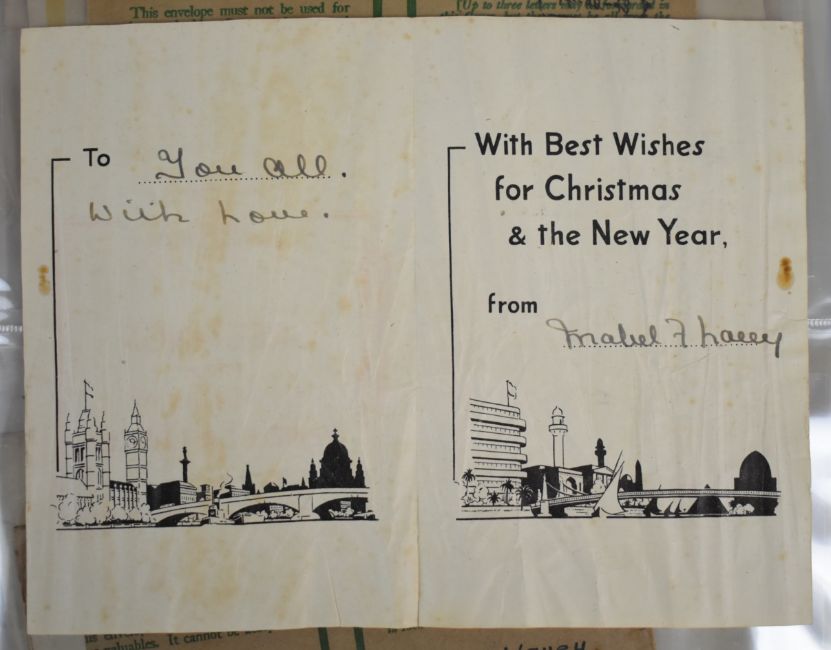 This envelope must not be used for
[Up to three letters may be forwarded in
To You all.
With Love.
With Best Wishes
for Christmas
& the New Year,
from
Mabel F
valuables. It cannot be